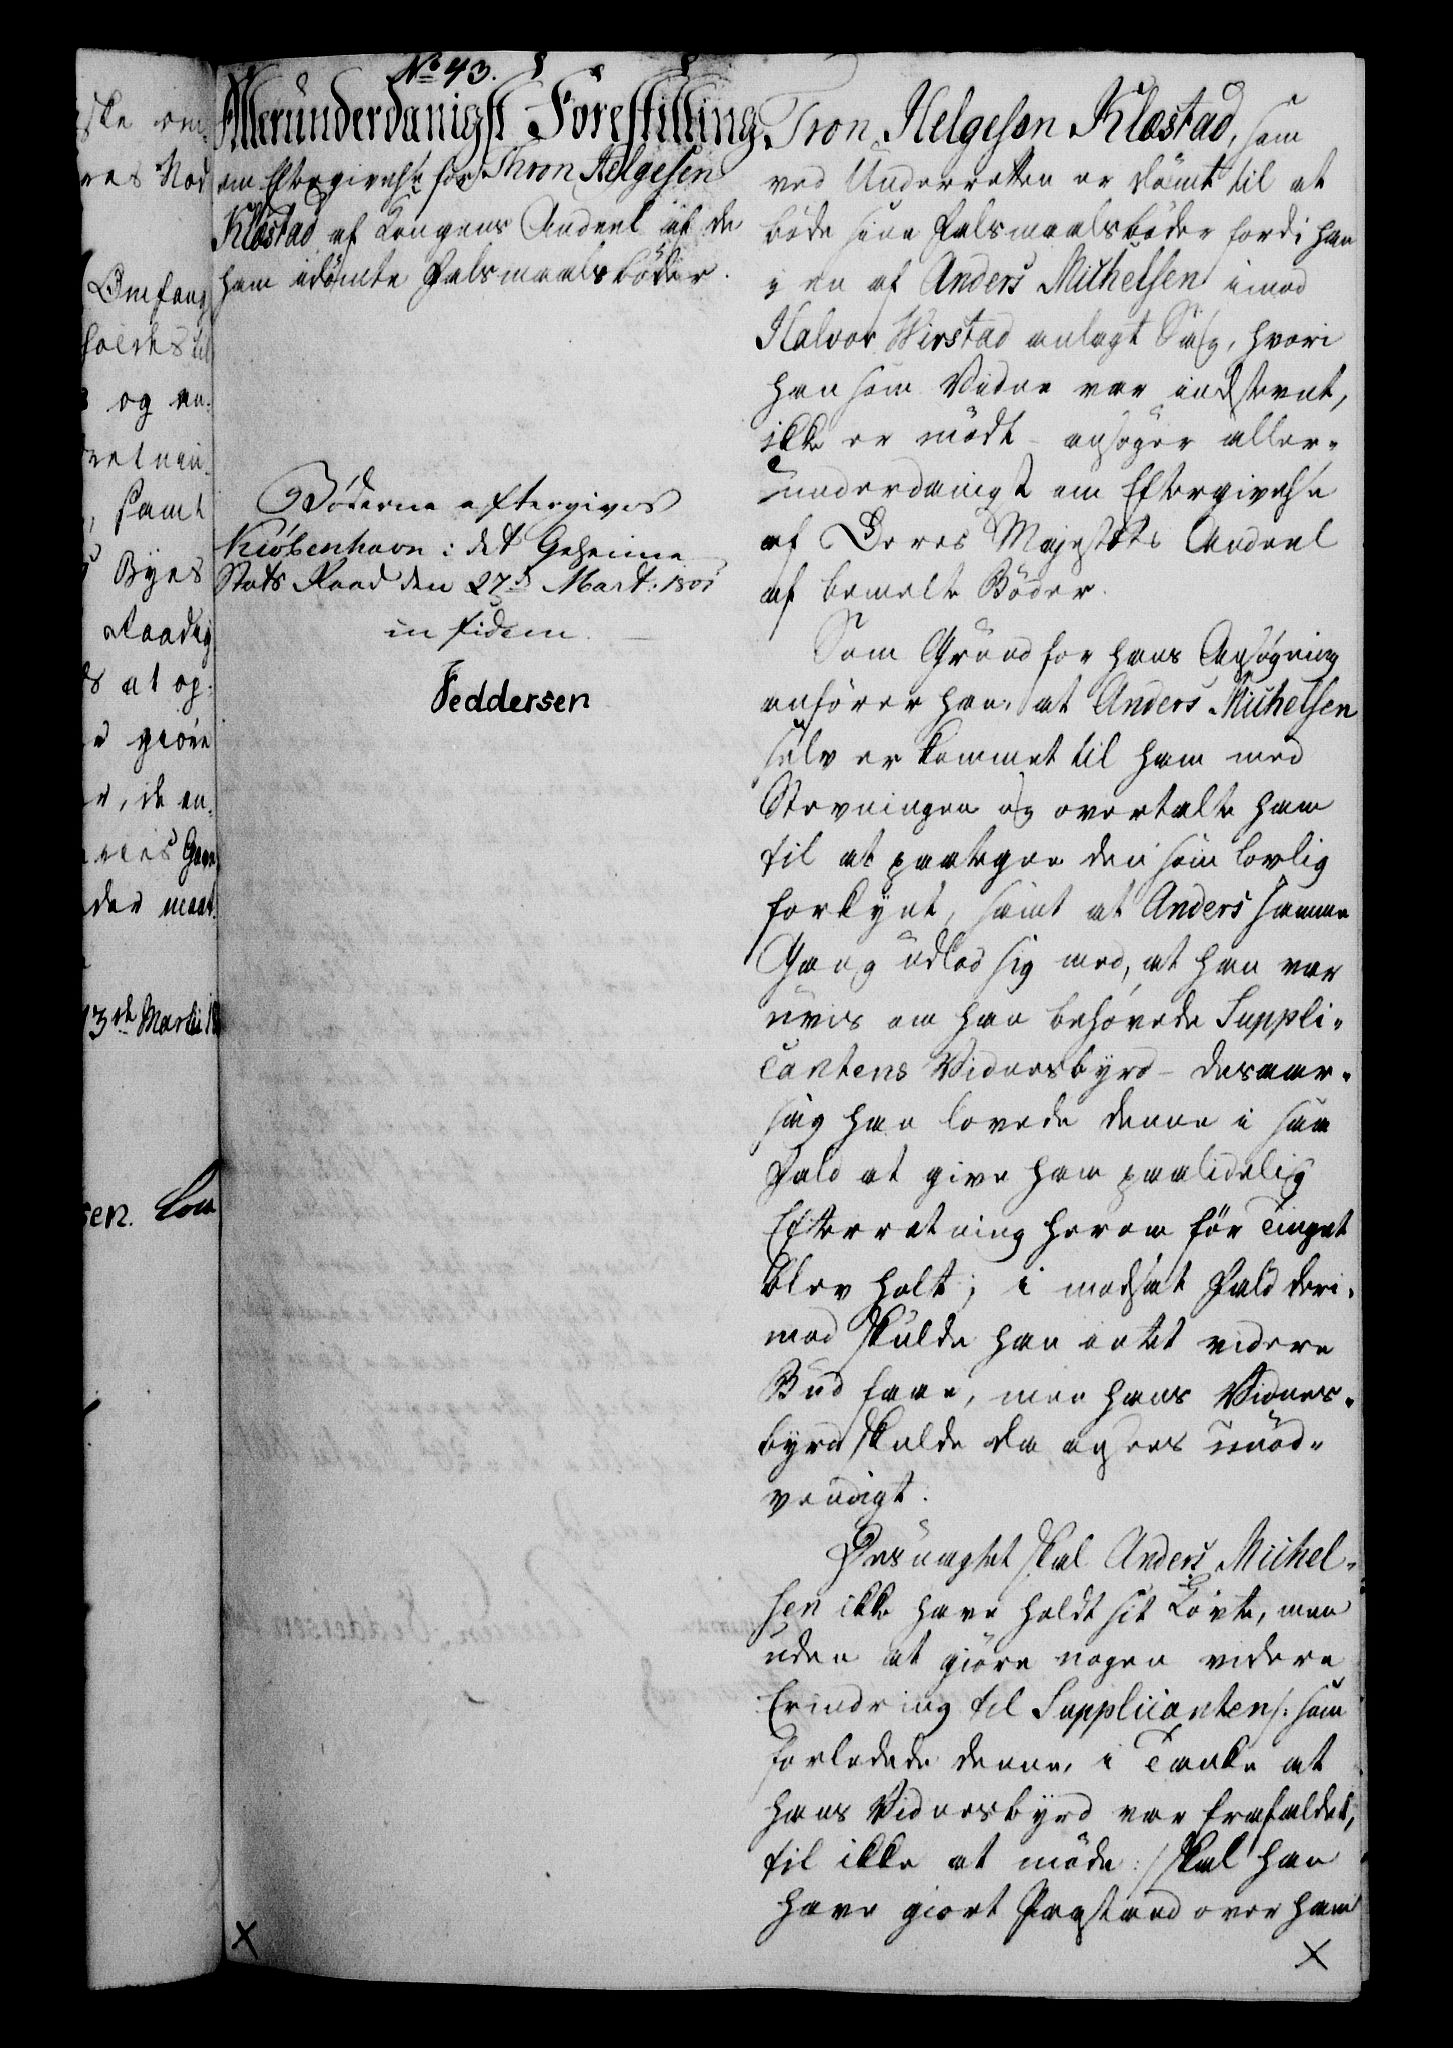 ske om-
res Nød
Omfang
holdes til
og an-
retnin-
, samt
Byes
Raadig
s at op-
giöre
r, de an-
Gave
der maat
13de Martii 18
sen.
No 43.
Allerunderdanigst Forestilling
om Eftergivelse for Thron Helgesen
Klæstad af Kongens Andeel af de
ham idömte Falsmaalsböder.
Böderne eftergives
Kiöbenhavn i det Geheime
Stats Raad den 27de Mart: 1801
in fidem.
Feddersen
Tron Helgesen Klæstad, som
ved Underretten er dömt til at
böde sine Falsmaalsböder fordi han
i en af Anders Michelsen imod
Halvor Wirstad anlagt Sag, hvori
han som Vidne var indstevnt,
ikke er mödt - ansøger aller-
underdanigst om Eftergivelse
af Deres Majestæts Andeel
af bemelte Böder.
Som Grund for hans Ansøgning
anförer han, at Anders Michelsen
selv er kommet til ham med
Stevningen og overtalte ham
til at paategne den som lovlig
forkÿnt, samt at Anders samme
Gang udlod sig med, at han var
uvis om han behövede Suppli-
cantens Vidnesbÿrd - desaar-
sag han lovede denne i saa
Fald at give ham paalidelig
Efterretning herom för Tinget
blev holt; i modsat Fald deri-
mod skulde han intet videre
Bud faae, men hans Vidnes-
bÿrd skulde da ansees unöd-
vendigt.
Desuagtet skal Anders Michel-
sen ikke have holdt sit Lövte, men
uden at giöre nogen videre
Erindring til Supplicanten /: som
forledede denne, i Tanke at
hans Vidnesbÿrd var frafaldet,
til ikke at möde :/ skal han
have giort Paastand over ham
X
X